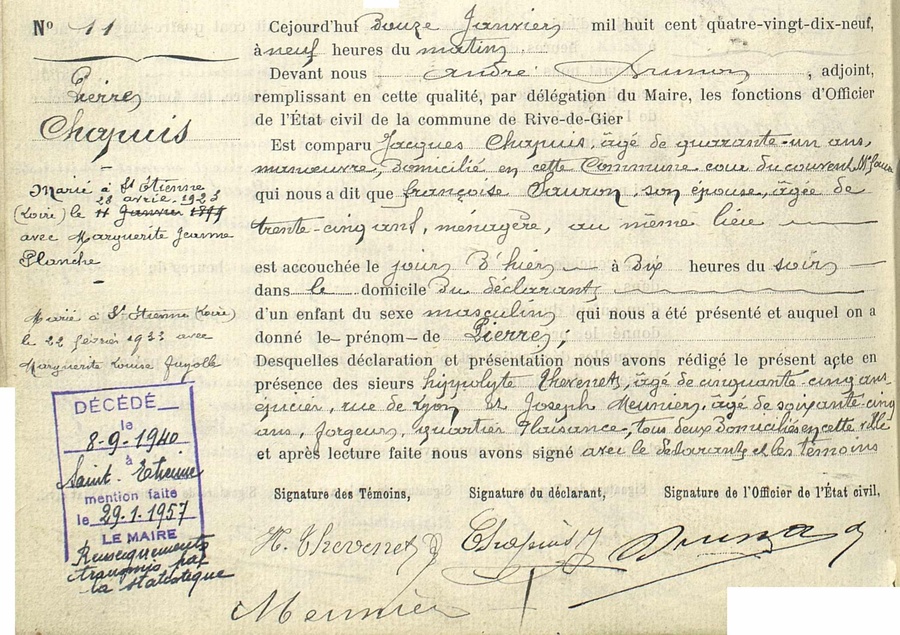 N° 11
Pierre
Chapuis
Marié à St Etienne
28 avril 1923
(Loire) le 11 Janvier 1899
avec Marguerite Jeanne
Planche
Marié à St Etienne (Loire)
le 22 février 1933 avec
Marguerite Louise Fayolle
DÉCÉDÉ
le
8-9-1940
à
Saint-Etienne
mention faite
le 29.1.1957
LE MAIRE
Renseignements
transmis par
la statistique
Cejourd'hui Douze Janvier mil huit cent quatre-vingt-dix-neuf,
à neuf heures du matin
Devant nous André , adjoint,
remplissant en cette qualité, par délégation du Maire, les fonctions d'Officier
de l'État civil de la commune de Rive-de-Gier
Est comparu Jacques Chapuis, âgé de quarante-un ans,
manœuvre, Domicilié en cette Commune cour du couvent
qui nous a dit que françoise Sauron, son épouse, âgée de
trente-cinq ans, ménagère, au même lieu
est accouchée le jour D'hier à Dix heures du soir
dans le domicile Du déclarant
d'un enfant du sexe masculin qui nous a été présenté et auquel on a
donné le prénom de Pierre;
Desquelles déclaration et présentation nous avons rédigé le présent acte en
présence des sieurs hippolyte Thevenet, âgé de cinquante cinq ans
épicier, rue de Lyon et Joseph Meunier, âgé de soixante-cinq
ans, forgeur, quartier Plaisance, tous deux Domiciliés en cette ville
et après lecture faite nous avons signé avec le déclarant et les témoins
Signature des Témoins, Signature du déclarant, Signature de l'Officier de l'État civil,
H. Thevenet Chapuis J
Meunier